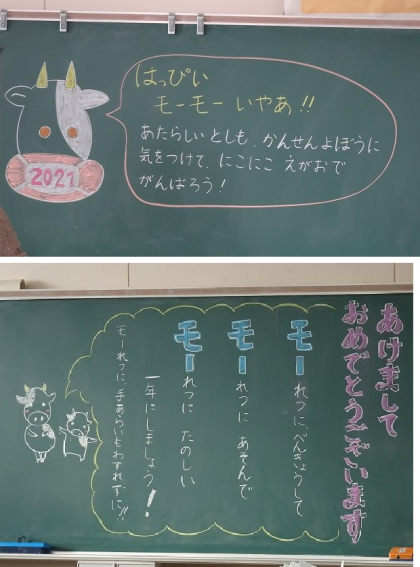 はっぴい
モーモー いやあ!!
あたらしいとしも、かんせんよぼうに
気をつけて、にこにこ えがおで
がんばろう!
2021
あけまして
おめでとうございます
モーれつに、べんきょうして、
モーれつに あそんで
モーれつに たのしい
一年にしましょう!
モーれつに 手あらいもわすれずに!!